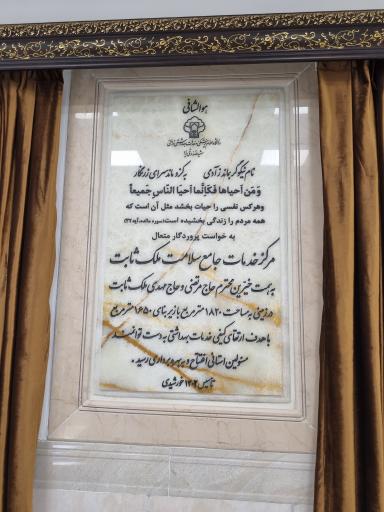 هوالشافی
نام نیکو گر بماند ز آدمی به کزو ماند سرای زرنگار
وَ مَن اَحیاها فَکَاَنَّما اَحیَا النّاسَ جَمیعاً
و هرکس نفسی را حیات بخشد مثل آن است که
همه مردم را زندگی بخشیده است (سوره مائده آیه ۳۲)
به خواست پروردگار متعال
مرکز خدمات جامع سلامت ملک ثابت
به همت خیرین محترم حاج مرتضی و حاج مهدی ملک ثابت
در زمینی به مساحت ۱۸۲۰ مترمربع با زیربنای ۱۶۵۰ مترمربع
با هدف ارتقای کیفی خدمات بهداشتی به دست توانمند
مسئولین استانی افتتاح و به بهره برداری رسید.
تأسیس ۱۴۰۲ خورشیدی